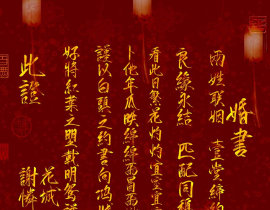 婚書
兩姓联姻 壹堂締約
良緣永结 匹配同稱
看此日繁花灼灼宜室宜家
卜佗年瓜瓞綿綿爾昌爾
謹以白頭之約書向鴻箋
好將红葉之盟載明鴛譜
此證
花纸
謝憐